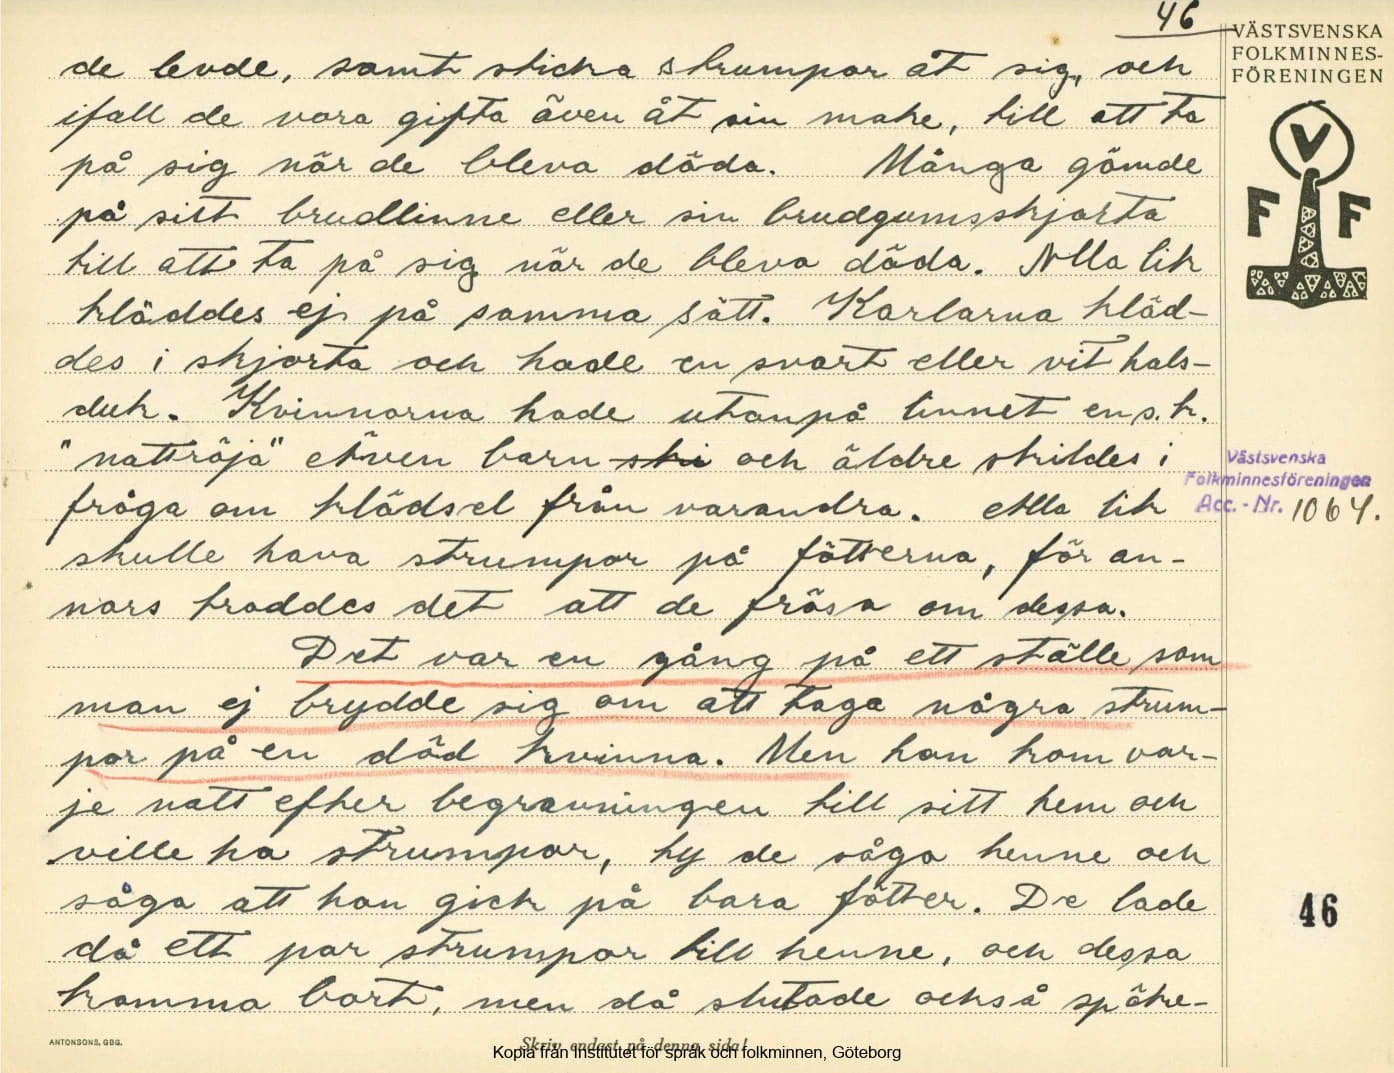 46
VÄSTSVENSKA
FOLKMINNES-
FÖRENINGEN
V
F F
de levde, samt sticka strumpor åt sig, och
ifall de vora gifta även åt sin make, till att ta
på sig när de bleva döda. Många gömde
på sitt brudlinne eller sin brudgumsskjorta
till att ta på sig när de bleva döda. Alla lik
kläddes ej på samma sätt. Karlarna kläd-
des i skjorta och hade en svart eller vit hals-
duk. Kvinnorna hade utanpå linnet en s.k.
"nattröja" Även barn och äldre skildes i
fråga om klädsel från varandra. Alla lik
skulle hava strumpor på fötterna, för an-
nars troddes det att de frösa om dessa.
Det var en gång på ett ställe som
man ej brydde sig om att taga några strum-
por på en död kvinna. Men hon kom var-
je natt efter begravningen till sitt hem och
ville ha strumpor, ty de sågo henne och
sågo att hon gick på bara fötter. De lade
då ett par strumpor till henne, och dessa
kommo bort, men då slutade också spöke-
Västsvenska
Folkminnesföreningen
Acc.-Nr. 1064.
46
ANTONSONS, GBG.
Skriv endast på denna sida!
Kopia från Institutet för språk och folkminnen, Göteborg